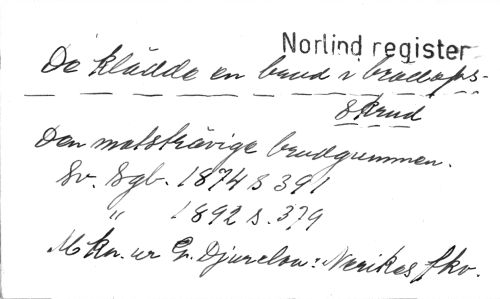 Norlind register
De klädde en brud i bröllops-
skrud
Den motsträvige brudgummen.
Sv. Sgb. 1874 s 391
" 1892 s. 379
Mskr. ur G. Djurclou: Nerikes fkv.